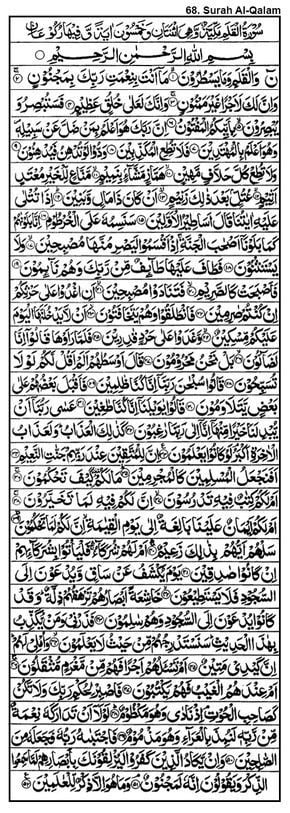 68. Surah Al-Qalam
سُوْرَةُ الْقَلَمِ مَكِّيَّةٌ وَّهِيَ اثْنَتَانِ وَخَمْسُوْنَ اٰيَةً وَّفِيْهَا رُكُوْعَانِ
بِسْمِ اللّٰهِ الرَّحْمٰنِ الرَّحِيْمِ
نٓ وَالْقَلَمِ وَمَا يَسْطُرُوْنَ ۙ۱ مَآ اَنْتَ بِنِعْمَةِ رَبِّكَ بِمَجْنُوْنٍ ۲
وَاِنَّ لَكَ لَاَجْرًا غَيْرَ مَمْنُوْنٍ ۳ وَاِنَّكَ لَعَلٰى خُلُقٍ عَظِيْمٍ ۴ فَسَتُبْصِرُ وَ
يُبْصِرُوْنَ ۵ بِاَيِّكُمُ الْمَفْتُوْنُ ۶ اِنَّ رَبَّكَ هُوَ اَعْلَمُ بِمَنْ ضَلَّ عَنْ سَبِيْلِهٖ
وَهُوَ اَعْلَمُ بِالْمُهْتَدِيْنَ ۷ فَلَا تُطِعِ الْمُكَذِّبِيْنَ ۸ وَدُّوْا لَوْ تُدْهِنُ فَيُدْهِنُوْنَ ۹
وَلَا تُطِعْ كُلَّ حَلَّافٍ مَّهِيْنٍ ۱۰ هَمَّازٍ مَّشَّآءٍۭ بِنَمِيْمٍ ۱۱ مَّنَّاعٍ لِّلْخَيْرِ مُعْتَدٍ
اَثِيْمٍ ۱۲ عُتُلٍّۭ بَعْدَ ذٰلِكَ زَنِيْمٍ ۱۳ اَنْ كَانَ ذَا مَالٍ وَّبَنِيْنَ ۱۴ اِذَا تُتْلٰى
عَلَيْهِ اٰيٰتُنَا قَالَ اَسَاطِيْرُ الْاَوَّلِيْنَ ۱۵ سَنَسِمُهٗ عَلَى الْخُرْطُوْمِ ۱۶ اِنَّا بَلَوْنٰهُمْ
كَمَا بَلَوْنَآ اَصْحٰبَ الْجَنَّةِ اِذْ اَقْسَمُوْا لَيَصْرِمُنَّهَا مُصْبِحِيْنَ ۱۷ وَلَا
يَسْتَثْنُوْنَ ۱۸ فَطَافَ عَلَيْهَا طَآئِفٌ مِّنْ رَّبِّكَ وَهُمْ نَآئِمُوْنَ ۱۹
فَاَصْبَحَتْ كَالصَّرِيْمِ ۲۰ فَتَنَادَوْا مُصْبِحِيْنَ ۲۱ اَنِ اغْدُوْا عَلٰى حَرْثِكُمْ
اِنْ كُنْتُمْ صٰرِمِيْنَ ۲۲ فَانْطَلَقُوْا وَهُمْ يَتَخَافَتُوْنَ ۲۳ اَنْ لَّا يَدْخُلَنَّهَا الْيَوْمَ
عَلَيْكُمْ مِّسْكِيْنٌ ۲۴ وَّغَدَوْا عَلٰى حَرْدٍ قٰدِرِيْنَ ۲۵ فَلَمَّا رَاَوْهَا قَالُوْٓا اِنَّا
لَضَآلُّوْنَ ۲۶ بَلْ نَحْنُ مَحْرُوْمُوْنَ ۲۷ قَالَ اَوْسَطُهُمْ اَلَمْ اَقُلْ لَّكُمْ لَوْلَا
تُسَبِّحُوْنَ ۲۸ قَالُوْا سُبْحٰنَ رَبِّنَآ اِنَّا كُنَّا ظٰلِمِيْنَ ۲۹ فَاَقْبَلَ بَعْضُهُمْ عَلٰى
بَعْضٍ يَّتَلَاوَمُوْنَ ۳۰ قَالُوْا يٰوَيْلَنَآ اِنَّا كُنَّا طٰغِيْنَ ۳۱ عَسٰى رَبُّنَآ اَنْ
يُّبْدِلَنَا خَيْرًا مِّنْهَآ اِنَّآ اِلٰى رَبِّنَا رٰغِبُوْنَ ۳۲ كَذٰلِكَ الْعَذَابُ وَلَعَذَابُ
الْاٰخِرَةِ اَكْبَرُ لَوْ كَانُوْا يَعْلَمُوْنَ ۳۳ اِنَّ لِلْمُتَّقِيْنَ عِنْدَ رَبِّهِمْ جَنّٰتِ النَّعِيْمِ ۳۴
اَفَنَجْعَلُ الْمُسْلِمِيْنَ كَالْمُجْرِمِيْنَ ۳۵ مَا لَكُمْ كَيْفَ تَحْكُمُوْنَ ۳۶
اَمْ لَكُمْ كِتٰبٌ فِيْهِ تَدْرُسُوْنَ ۳۷ اِنَّ لَكُمْ فِيْهِ لَمَا تَخَيَّرُوْنَ ۳۸
اَمْ لَكُمْ اَيْمَانٌ عَلَيْنَا بَالِغَةٌ اِلٰى يَوْمِ الْقِيٰمَةِ اِنَّ لَكُمْ لَمَا تَحْكُمُوْنَ ۳۹
سَلْهُمْ اَيُّهُمْ بِذٰلِكَ زَعِيْمٌ ۴۰ اَمْ لَهُمْ شُرَكَآءُ فَلْيَاْتُوْا بِشُرَكَآئِهِمْ
اِنْ كَانُوْا صٰدِقِيْنَ ۴۱ يَوْمَ يُكْشَفُ عَنْ سَاقٍ وَّيُدْعَوْنَ اِلَى
السُّجُوْدِ فَلَا يَسْتَطِيْعُوْنَ ۴۲ خَاشِعَةً اَبْصَارُهُمْ تَرْهَقُهُمْ ذِلَّةٌ وَقَدْ
كَانُوْا يُدْعَوْنَ اِلَى السُّجُوْدِ وَهُمْ سٰلِمُوْنَ ۴۳ فَذَرْنِيْ وَمَنْ يُّكَذِّبُ
بِهٰذَا الْحَدِيْثِ سَنَسْتَدْرِجُهُمْ مِّنْ حَيْثُ لَا يَعْلَمُوْنَ ۴۴ وَاُمْلِيْ لَهُمْ
اِنَّ كَيْدِيْ مَتِيْنٌ ۴۵ اَمْ تَسْـَٔلُهُمْ اَجْرًا فَهُمْ مِّنْ مَّغْرَمٍ مُّثْقَلُوْنَ ۴۶
اَمْ عِنْدَهُمُ الْغَيْبُ فَهُمْ يَكْتُبُوْنَ ۴۷ فَاصْبِرْ لِحُكْمِ رَبِّكَ وَلَا تَكُنْ
كَصَاحِبِ الْحُوْتِ اِذْ نَادٰى وَهُوَ مَكْظُوْمٌ ۴۸ لَوْلَآ اَنْ تَدٰرَكَهٗ نِعْمَةٌ
مِّنْ رَّبِّهٖ لَنُبِذَ بِالْعَرَآءِ وَهُوَ مَذْمُوْمٌ ۴۹ فَاجْتَبٰهُ رَبُّهٗ فَجَعَلَهٗ مِنَ
الصّٰلِحِيْنَ ۵۰ وَاِنْ يَّكَادُ الَّذِيْنَ كَفَرُوْا لَيُزْلِقُوْنَكَ بِاَبْصَارِهِمْ لَمَّا سَمِعُوا
الذِّكْرَ وَيَقُوْلُوْنَ اِنَّهٗ لَمَجْنُوْنٌ ۵۱ وَمَا هُوَ اِلَّا ذِكْرٌ لِّلْعٰلَمِيْنَ ۵۲